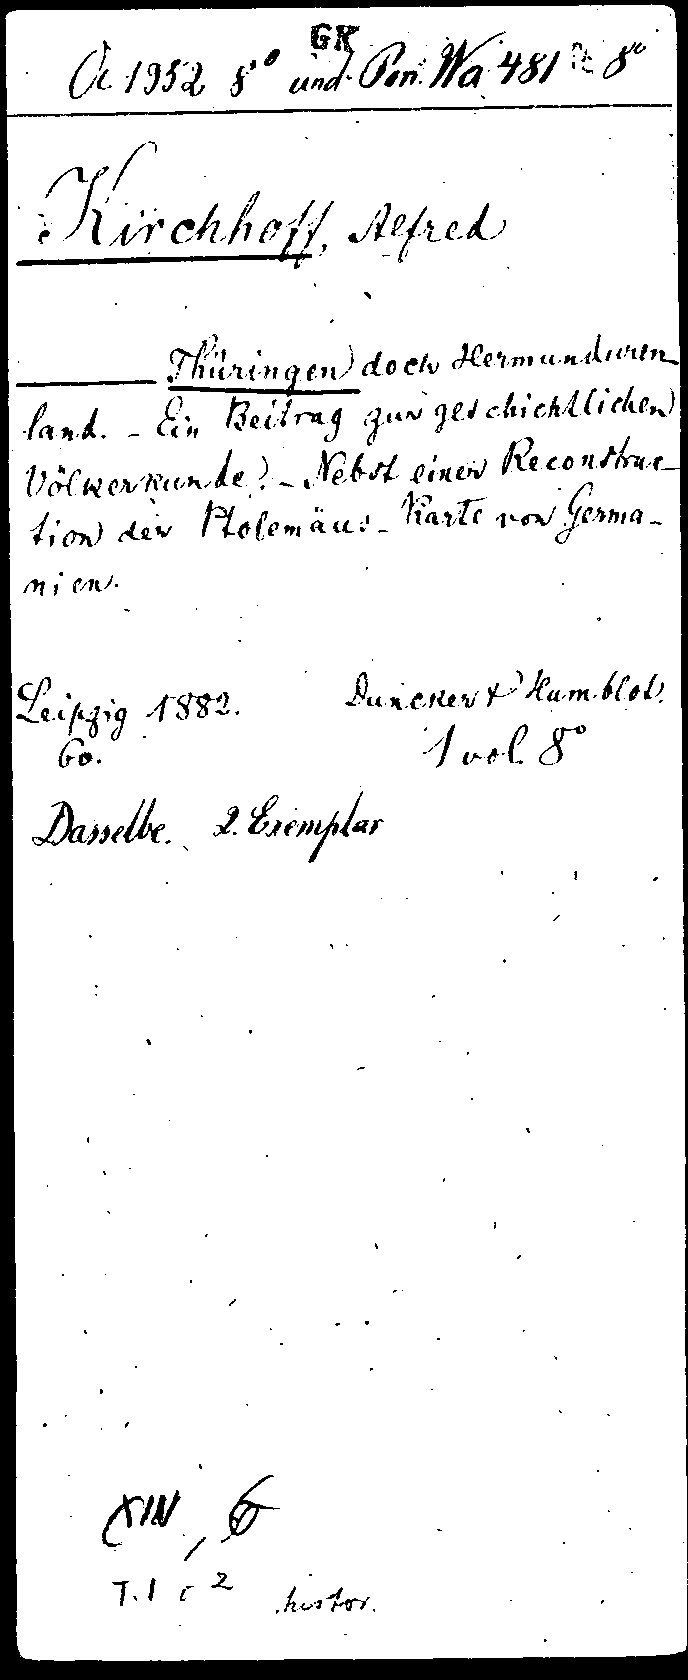 GR
Oc 1952 8° und Pon. Wa 481 8°
Kirchhoff, Alfred
Thüringen doch Hermunduren
land. - Ein Beitrag zur geschichtlichen
Völkerkunde. - Nebst einer Reconstruc-
tion der Ptolemäus-Karte von Germa-
nien.
Leipzig 1882. Duncker & Humblot.
60. 1 vol. 8°
Dasselbe. 2. Exemplar
XIV, 6
T. 1 c 2 histor.